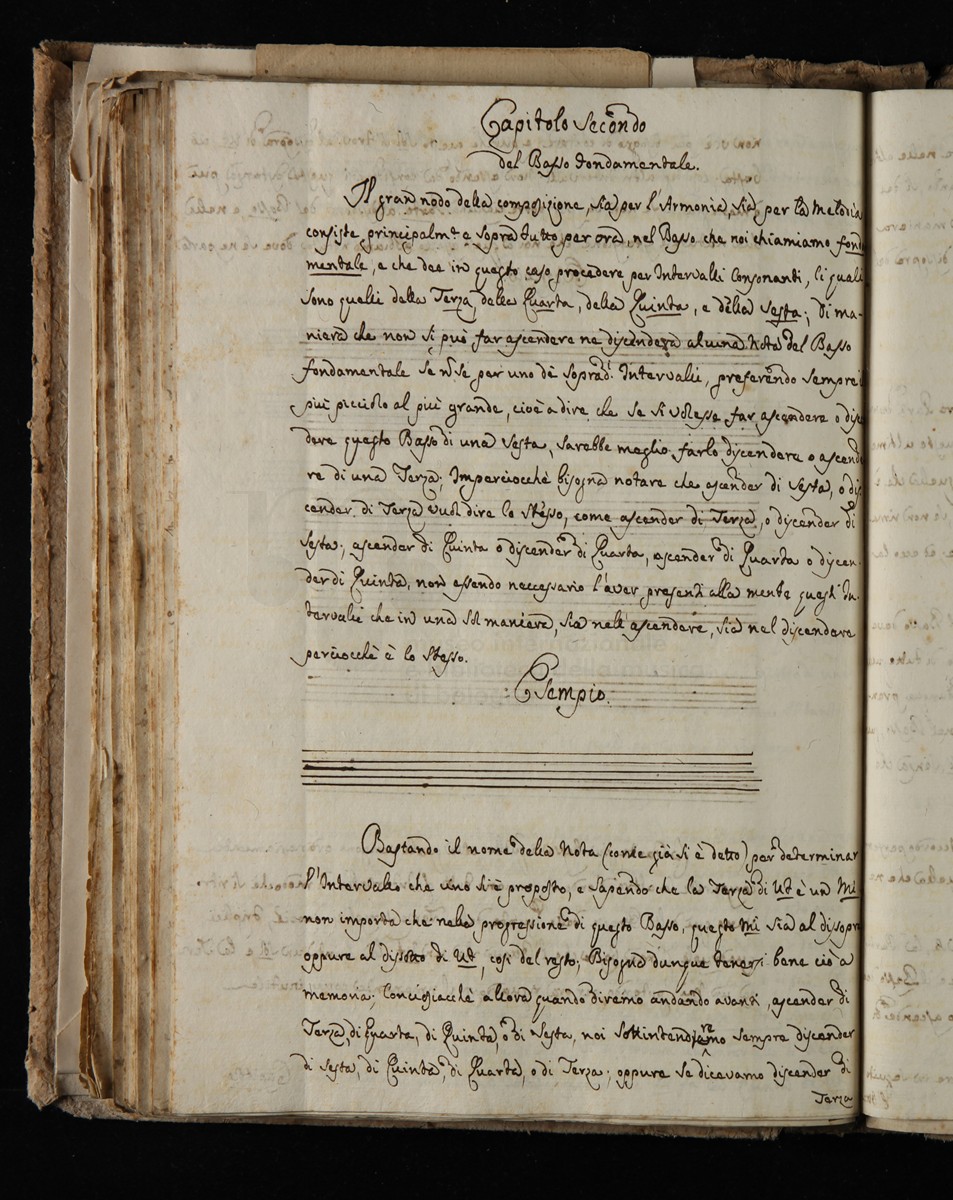 Capitolo Secondo
del Basso fondamentale.
Il gran nodo della composizione, sia per l'Armonia, sia per la Melodia
consiste principalmte e sopra tutto per ora, nel Basso che noi chiamiamo fond
mentale, e che dee in questo caso procedere per Intervalli Consonanti, li quali
sono quelli della Terza, della Quarta, della Quinta, e della Sesta; di ma-
niera che non si può far ascendere ne discendere alcuna Nota del Basso
fondamentale se no' se per uno dè soprad.i Intervalli, preferendo sempre i
più picciolo al più grande, cioè a dire che se si volesse far ascendere o disc
dere questo Basso di una Sesta, sarebbe meglio farlo discendere o ascend
re di una Terza; Imperciocchè bisogna notare che ascender di Sesta, o dis
cender di Terza vuol dire lo stesso, come ascender di Terza, o discender di
Sesta; ascender di Quinta o discender di Quarta, ascender di Quarta o discen-
der di Quinta, non essendo neccessario l'aver presenti alla mente questi In-
tervalli che in una sol maniera, sia nell'ascendere, sia nel discendere
perciocchè è lo stesso.
Esempio.
Bastando il nome della Nota (come già si è detto) per determinar
l'Intervallo che uno si è proposto, e sapendo che la Terza di Ut è un Mi
non importa che nella progressione di questo Basso, questo Mi sia al disopr
oppure al dissotto di Ut, così del resto; Bisogna dunque tenersi bene ciò a
memoria; Conciosiacchè allora quando diremo andando avanti, ascender di
Terza, di Quarta, di Quinta, o di Sesta, noi sottintenderemo sempre discender
di Sesta, di Quinta, di Quarta, o di Terza; oppure se dicevamo discender di
Terza